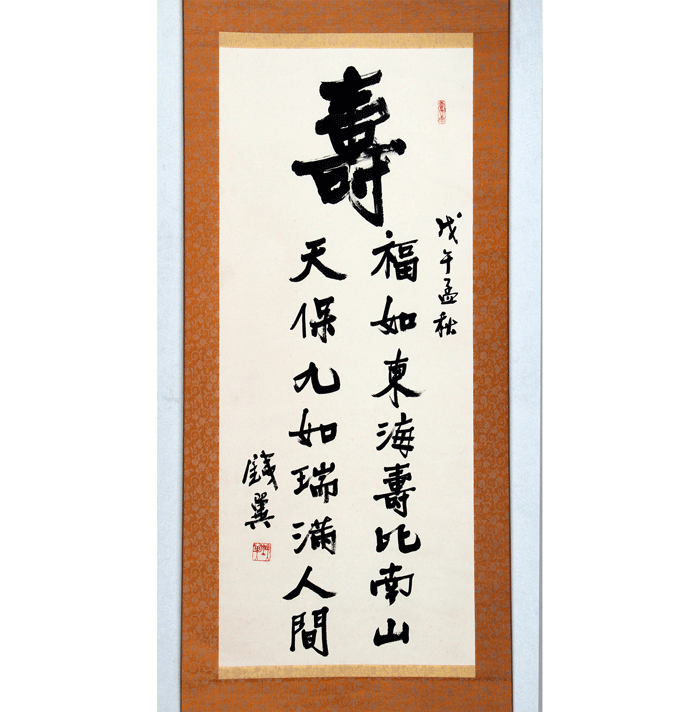 壽
戊午孟秋
福如東海壽比南山
天保九如瑞滿人間
錢翼